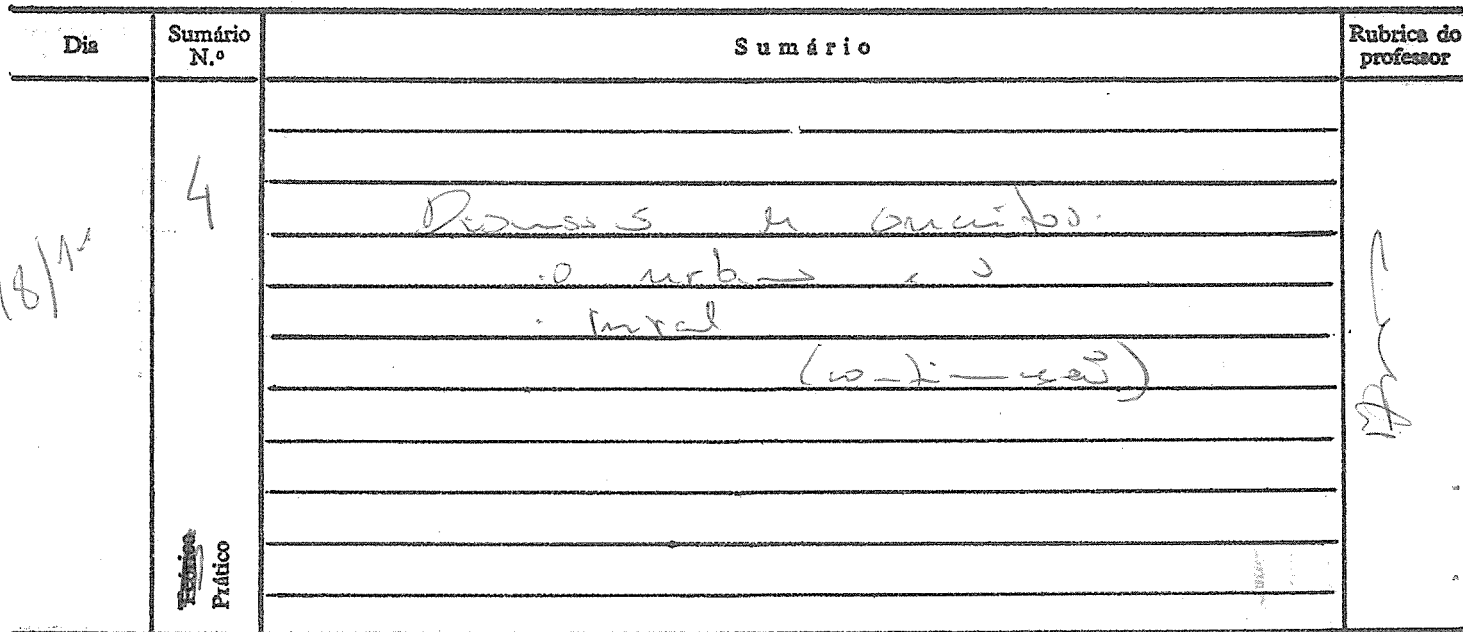 Dia
Sumário N.º
Sumário
Rubrica do professor
18/11
4
Discussão de conceitos.
. o urbano e o
. rural
(continuação)
Teórico
Prático